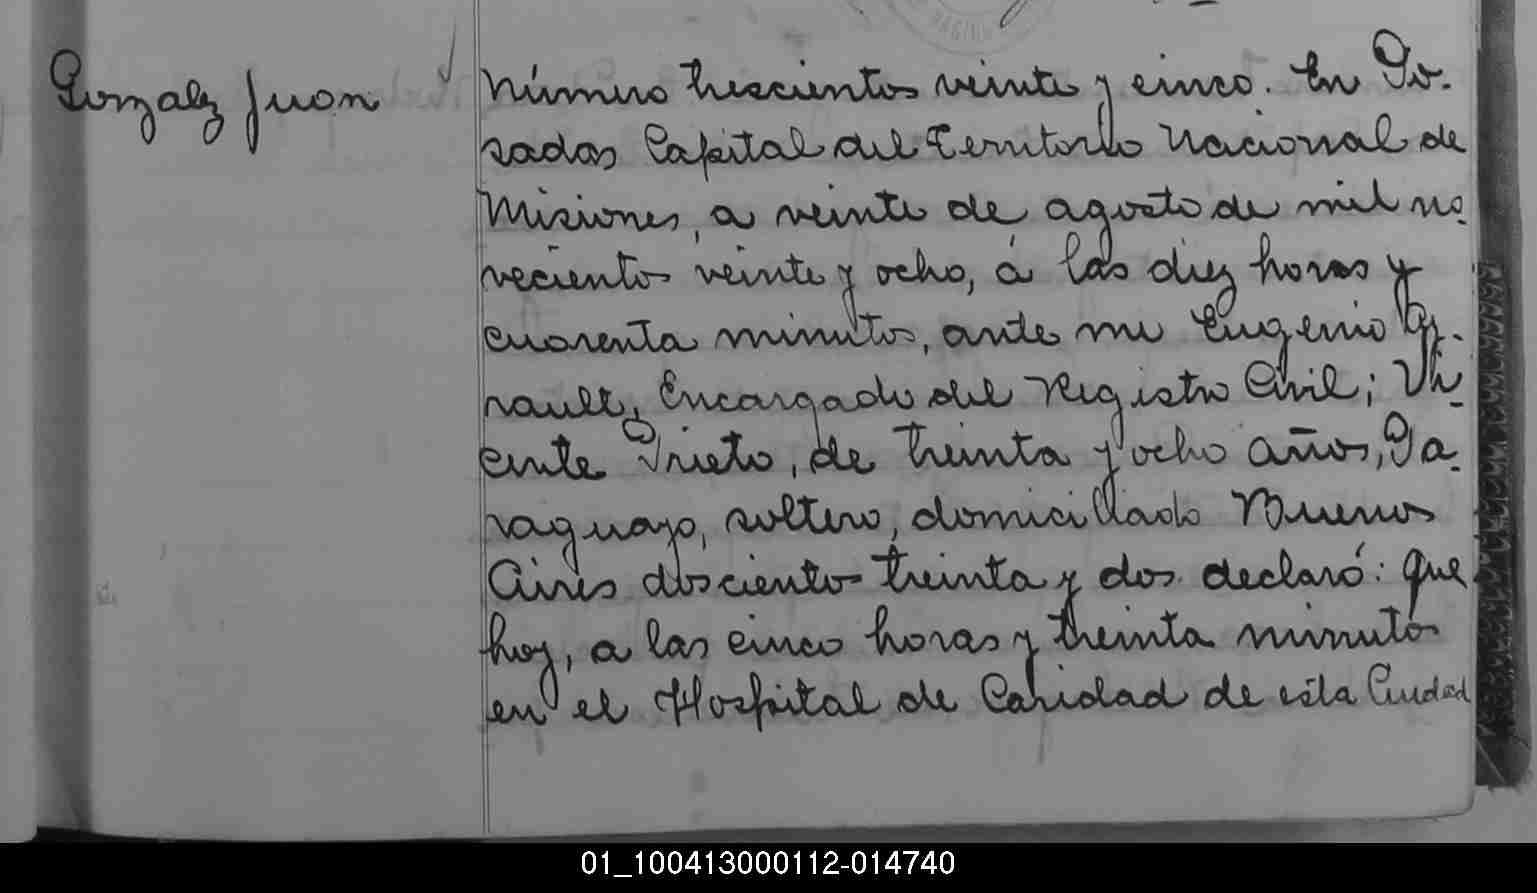 Gonzalez Juan
Número trescientos veinte y cinco. En Po-
sadas Capital del Territorio Nacional de
Misiones, a veinte de agosto de mil no-
vecientos veinte y ocho, á las diez horas y
cuarenta minutos, ante mi Eugenio Gi-
rault, Encargado del Registro Civil; Vi-
cente Prieto, de treinta y ocho años, Pa-
raguayo, soltero, domiciliado Buenos
Aires doscientos treinta y dos declaró: que
hoy, a las cinco horas y treinta minutos
en el Hospital de Caridad de esta Ciudad
01_100413000112-014740